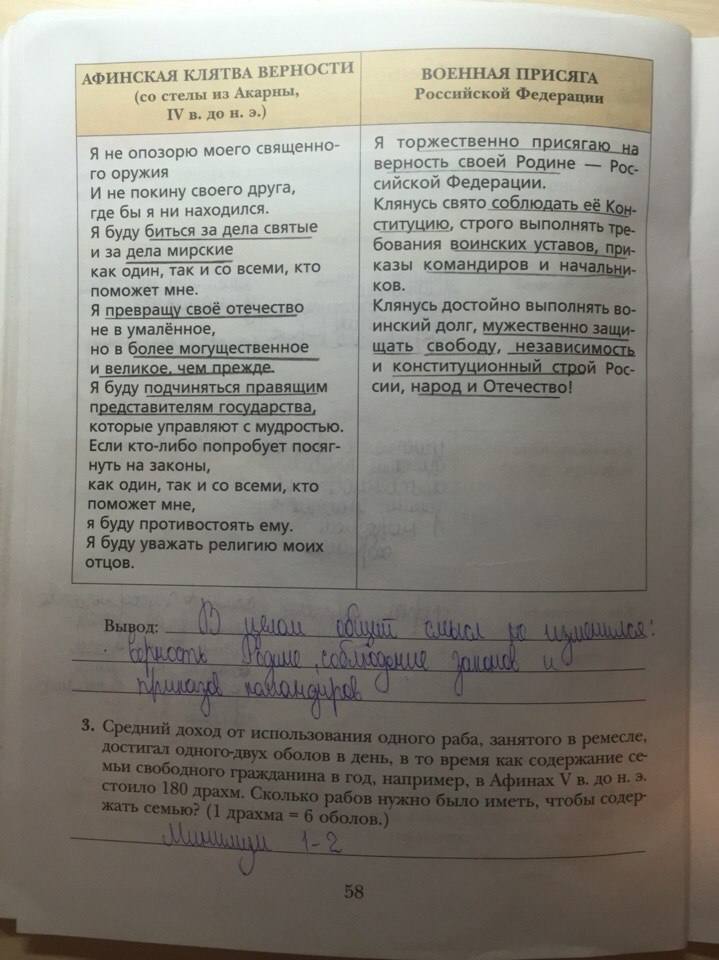 АФИНСКАЯ КЛЯТВА ВЕРНОСТИ
(со стелы из Акарны,
IV в. до н. э.)
Я не опозорю моего священно-
го оружия
И не покину своего друга,
где бы я ни находился.
Я буду биться за дела святые
и за дела мирские
как один, так и со всеми, кто
поможет мне.
Я превращу своё отечество
не в умалённое,
но в более могущественное
и великое, чем прежде.
Я буду подчиняться правящим
представителям государства,
которые управляют с мудростью.
Если кто-либо попробует посяг-
нуть на законы,
как один, так и со всеми, кто
поможет мне,
я буду противостоять ему.
Я буду уважать религию моих
отцов.
ВОЕННАЯ ПРИСЯГА
Российской Федерации
Я торжественно присягаю на
верность своей Родине — Рос-
сийской Федерации.
Клянусь свято соблюдать её Кон-
ституцию, строго выполнять тре-
бования воинских уставов, при-
казы командиров и начальни-
ков.
Клянусь достойно выполнять во-
инский долг, мужественно защи-
щать свободу, независимость
и конституционный строй Рос-
сии, народ и Отечество!
Вывод: В целом общий смысл не изменился:
верность Родине, соблюдение законов и
приказов командиров
3. Средний доход от использования одного раба, занятого в ремесле,
достигал одного-двух оболов в день, в то время как содержание се-
мьи свободного гражданина в год, например, в Афинах V в. до н. э.
стоило 180 драхм. Сколько рабов нужно было иметь, чтобы содер-
жать семью? (1 драхма = 6 оболов.)
Минимум 1-2
58